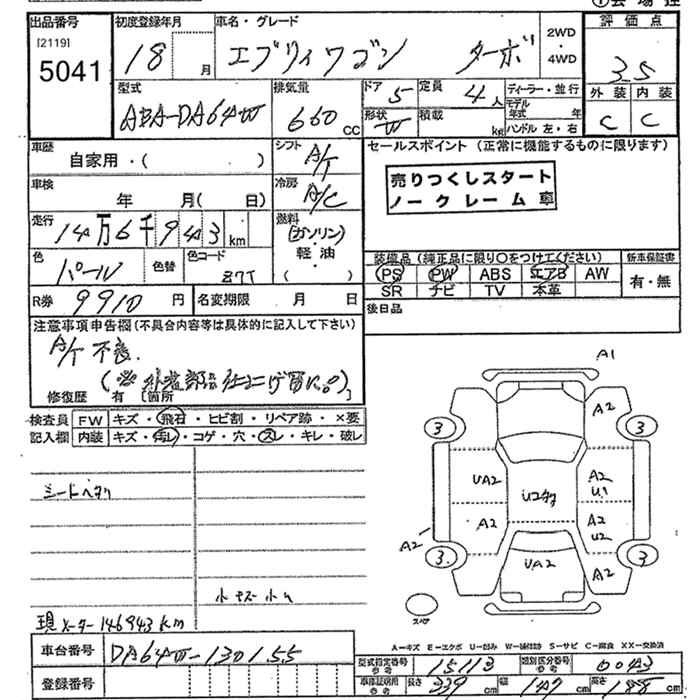 ①会場控
出品番号 初度登録年月 車名・グレード 2WD・4WD 評価点
[2119]
5041 18 月 エブリィワゴン ターボ 3.5
型式 排気量 ドア 5 定員 4人 ディーラー・並行 外装 内装
ABA-DA64W 660 CC 形状 W 積載 kg モデル年式 年 C C
ハンドル 左・右
車歴 自家用・( ) シフト A/T セールスポイント (正常に機能するものに限ります)
車検 年 月( 日) 冷房 A/C 売りつくしスタート
ノークレーム 車
走行 14万6千943km 燃料 ガソリン・軽油・( )
色 パール 色替 色コード Z7T 装備品(純正品に限り○をつけてください) 新車保証書
PS PW ABS エアB AW 有・無
SR ナビ TV 本革
R券 9910円 名変期限 月 日 後日品
注意事項申告欄(不具合内容等は具体的に記入して下さい)
A/T不良.
修復歴 有 [箇所 ]
検査員 FW キズ・飛石・ヒビ割・リペア跡・×要
記入欄 内装 キズ・汚レ・コゲ・穴・スレ・キレ・破レ
A1
A2
3 3
UA2 A2
U1
A2 A2
U2
A2
3 UA2 3
A2
シートヘタリ
スペア
現メーター146943km
A-キズ E-エクボ U-凹み W-補修跡 S-サビ C-腐食 XX-交換済
車台番号 DA64W-130155 型式指定番号 参考 15113 類別区分番号 参考 0043
登録番号 車庫証明用 参考 長さ 339cm 幅 147cm 高さ cm